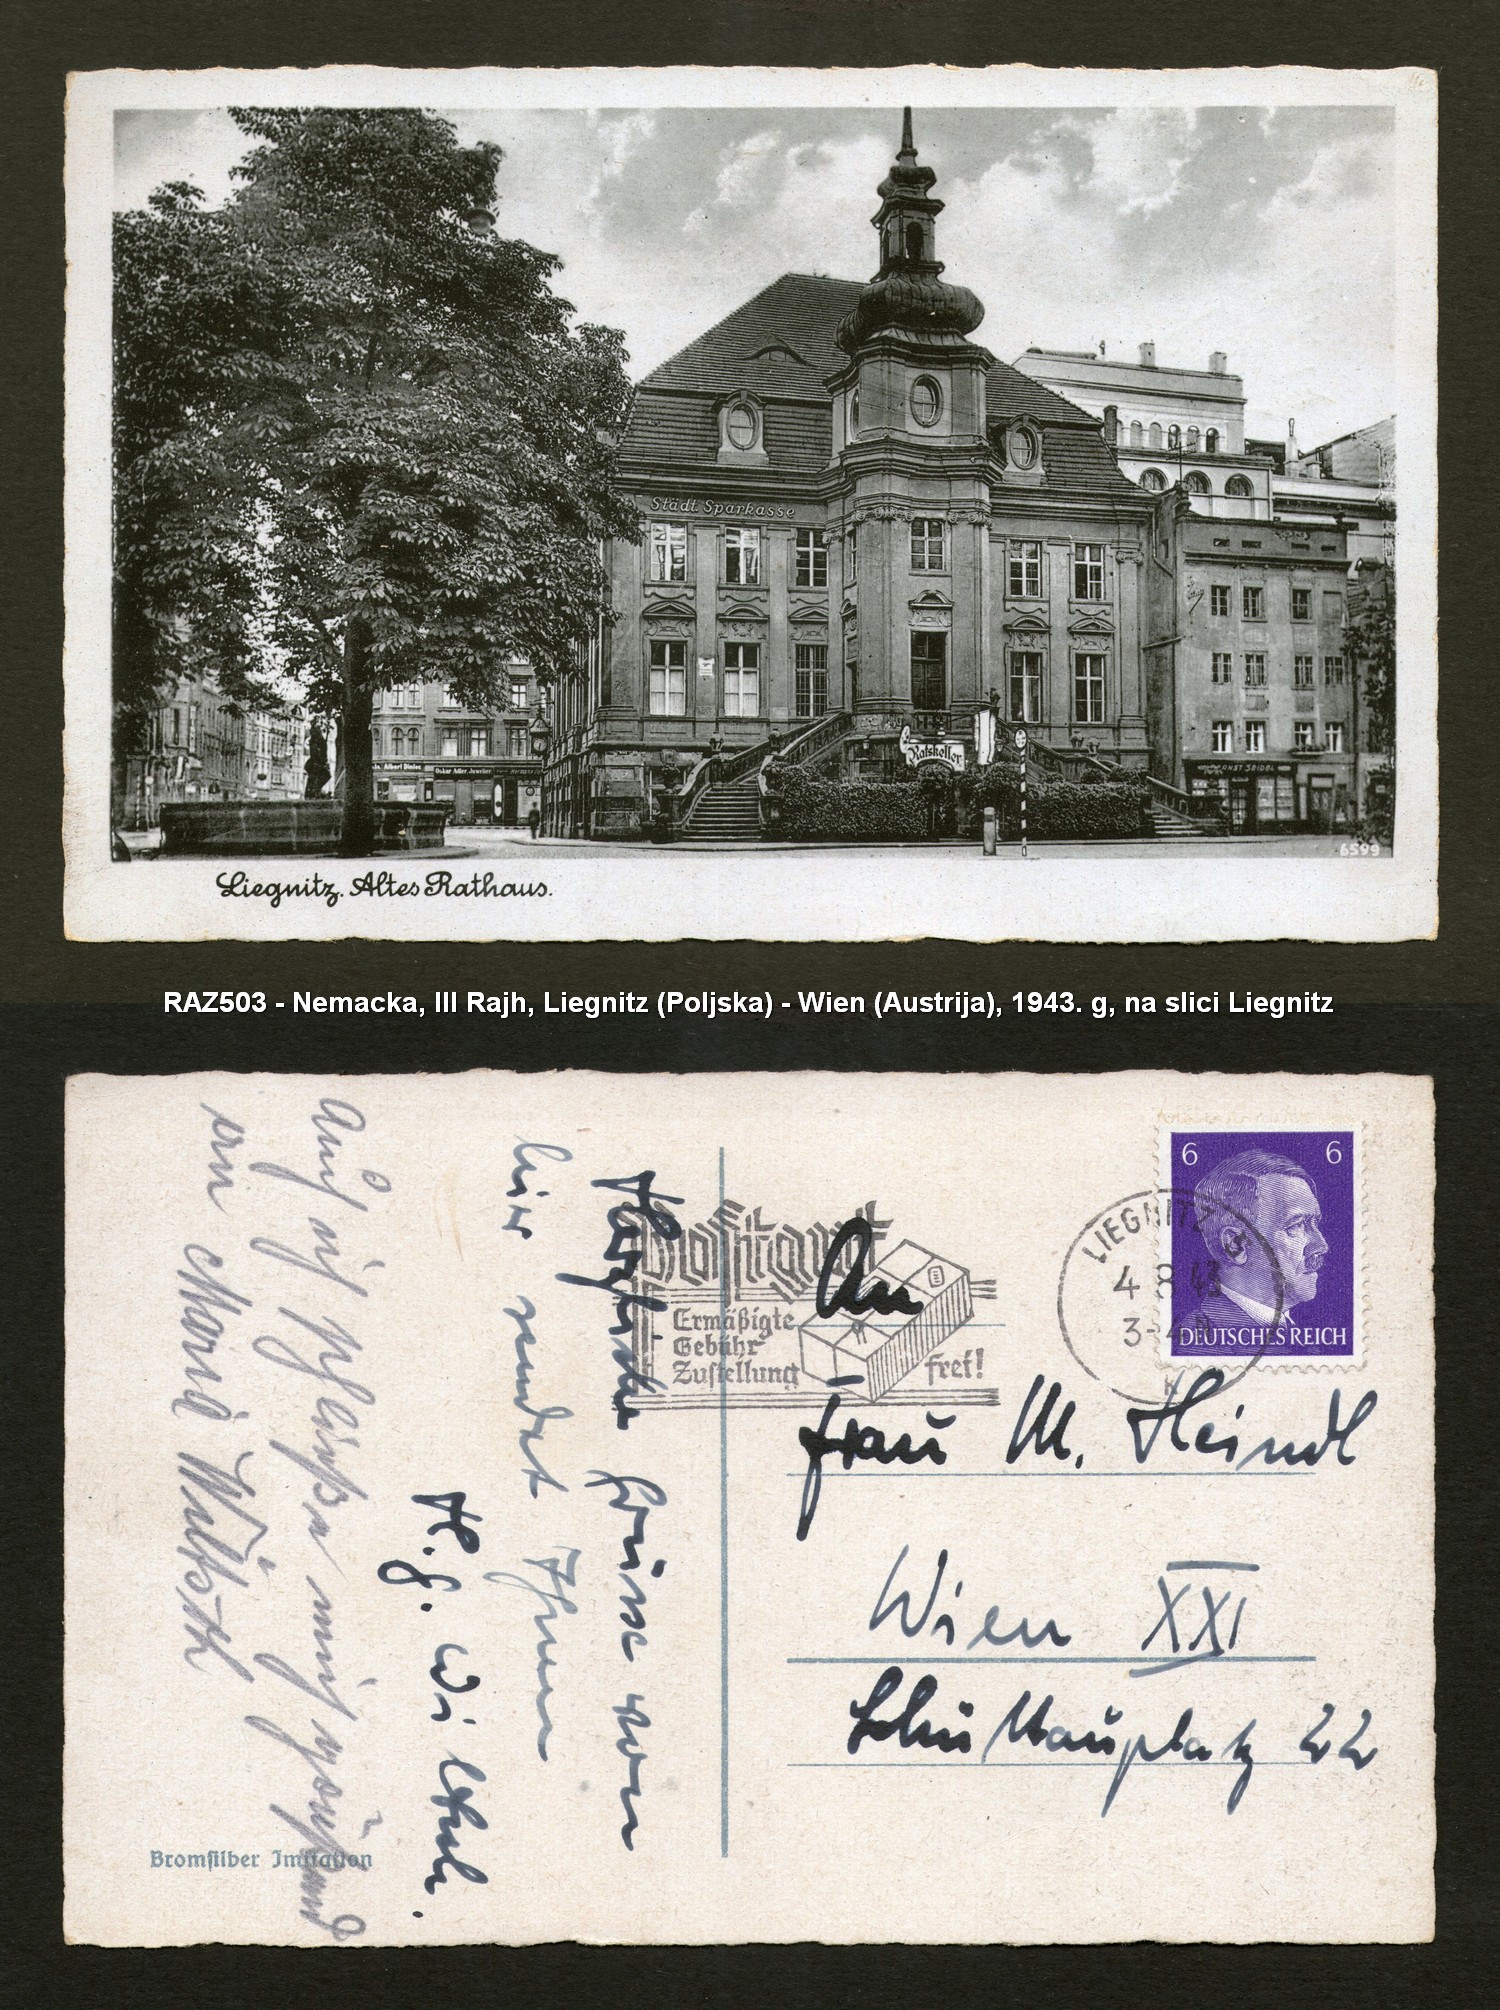 Städt. Sparkasse
Ratskeller
Albert Dinlos
Oskar Adler Juwelier
ERNST SEIDEL
6599
Liegnitz. Altes Rathaus.
RAZ503 - Nemacka, III Rajh, Liegnitz (Poljska) - Wien (Austrija), 1943. g, na slici Liegnitz
6 6
DEUTSCHES REICH
LIEGNITZ 5
4 8 43
3-4
k
Postgut
Ermäßigte
Gebühr
Zustellung
frei!
An
Frau M. Heindl
Wien XXI
Schüttauplatz 22
Herzliche Grüsse von
hier sendet Ihnen
H. G. Wilbeth.
Auch ich schließe mich grüßend
an Maria Wilbeth
Bromsilber Imitation